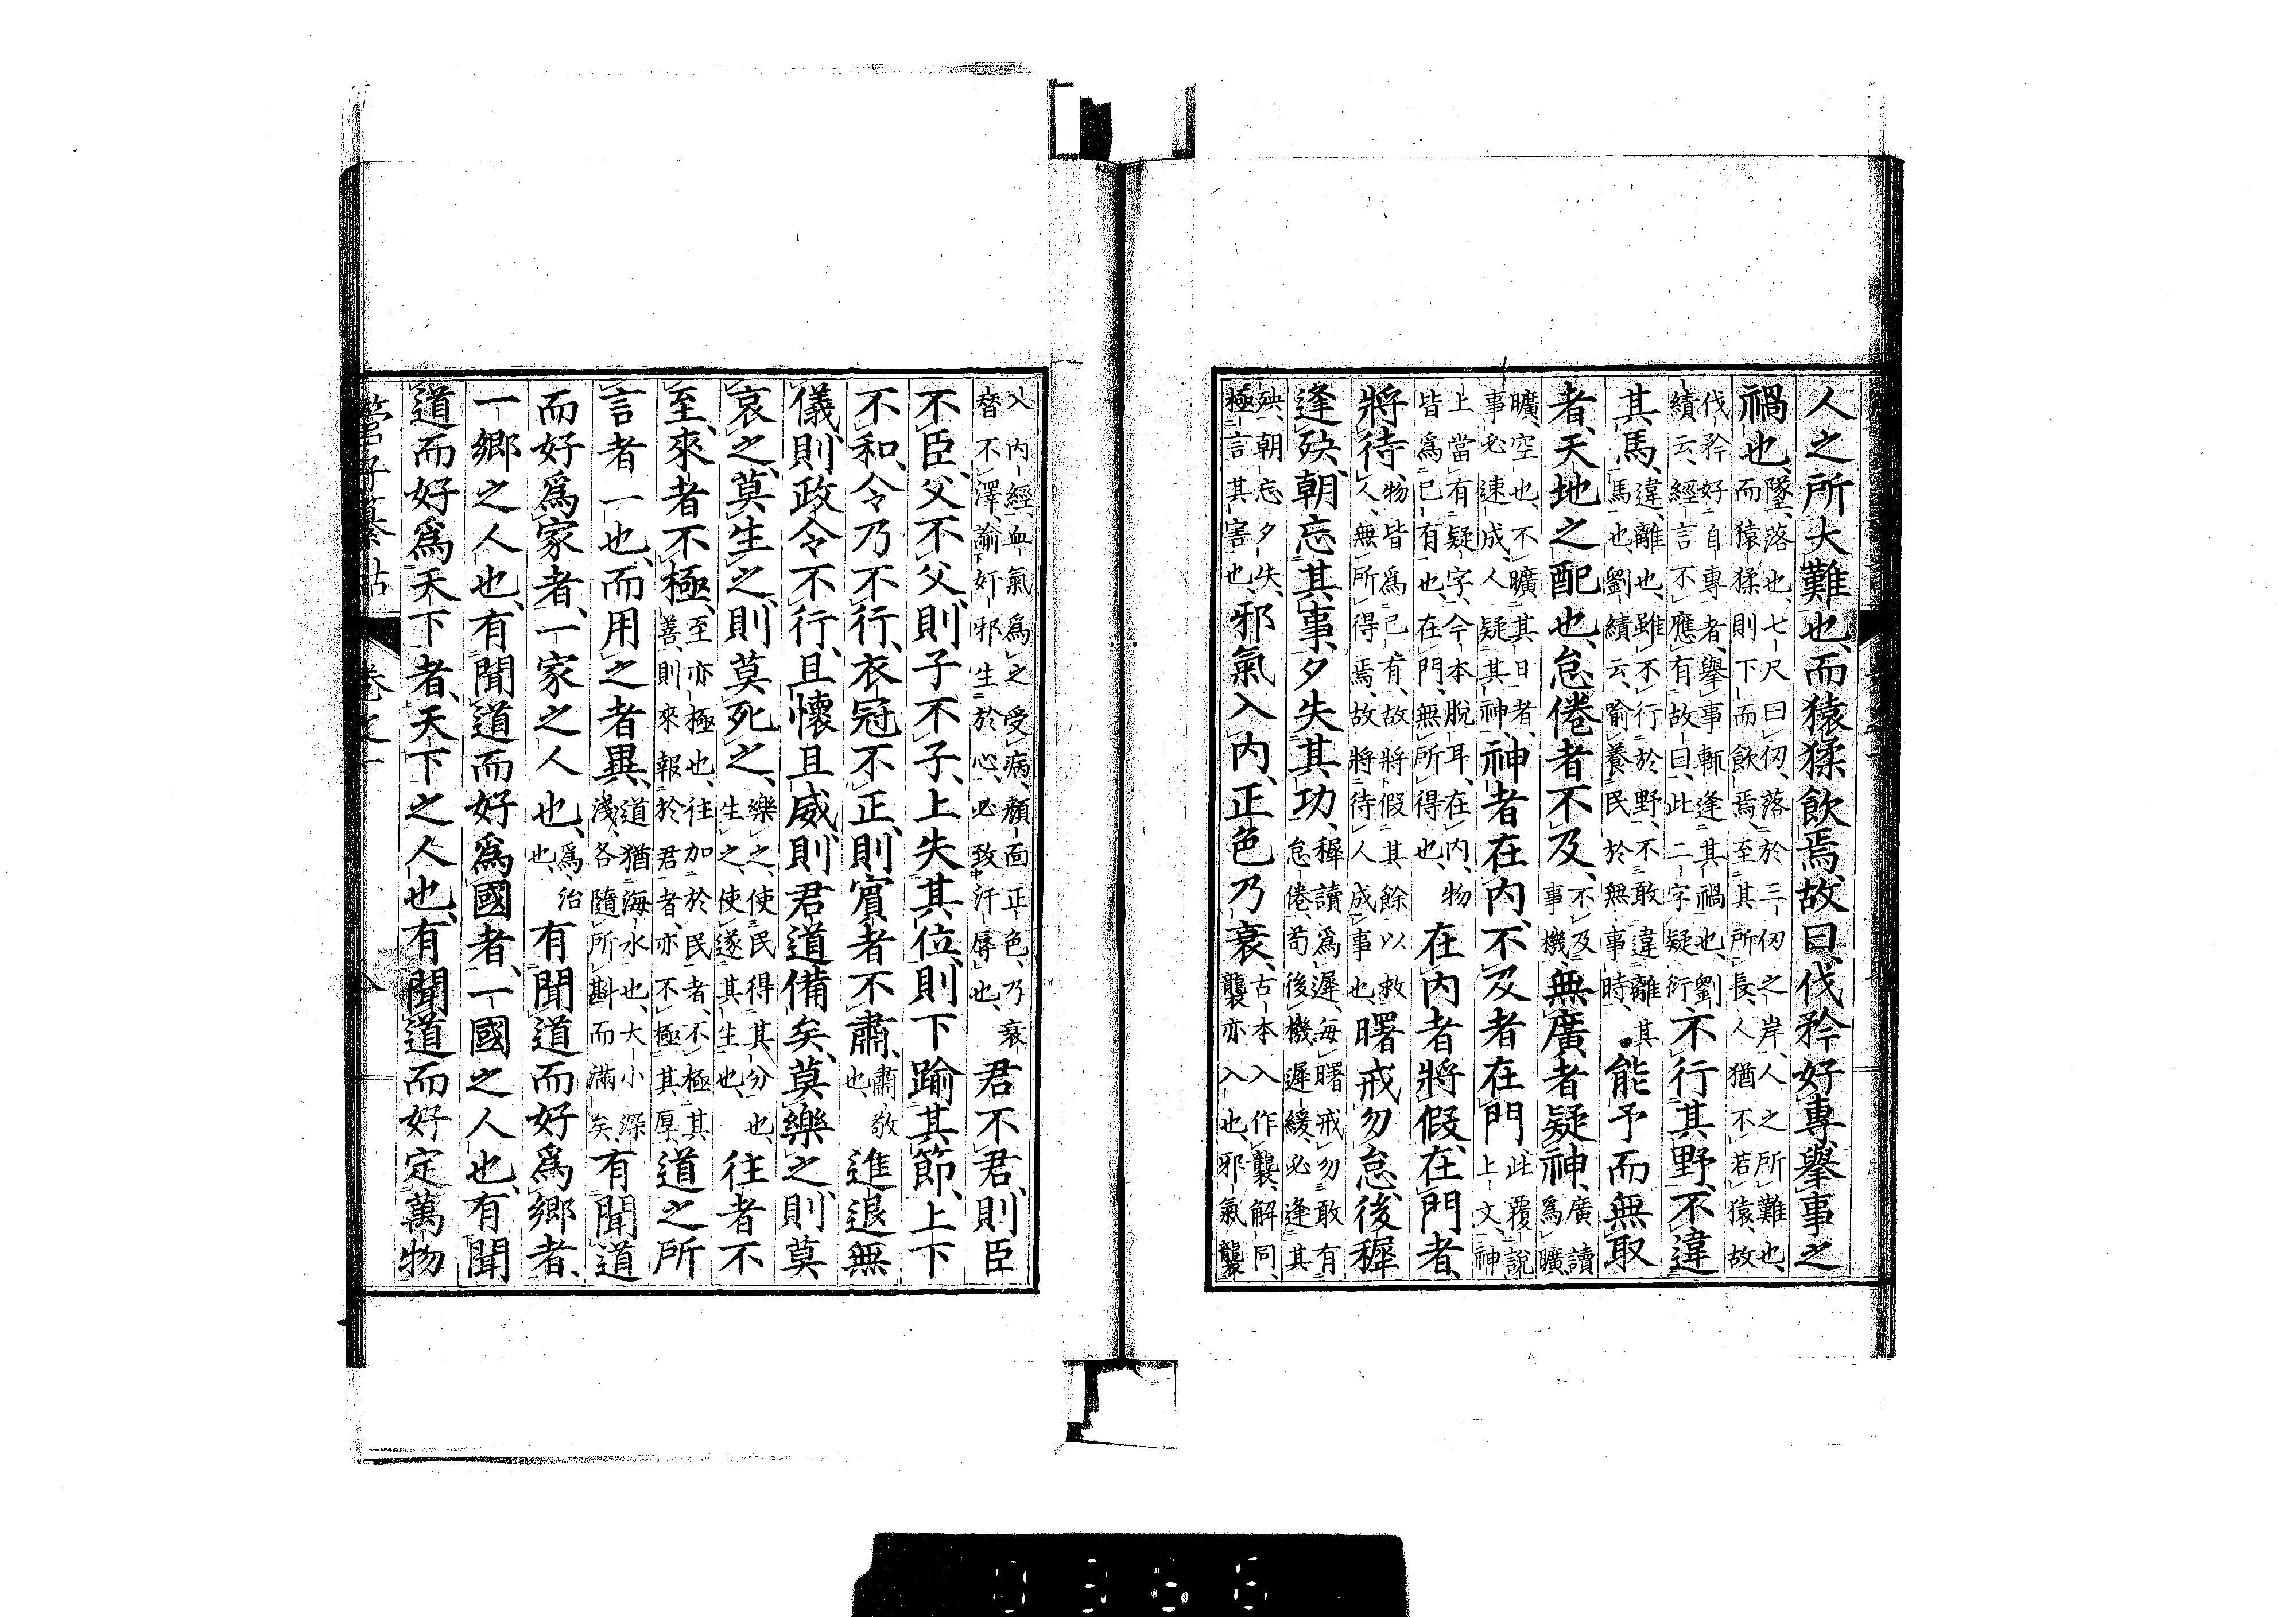 人之所大難也、而猿猱飮焉、故曰、伐矜好專、擧事之
禍也、墜、落也、七尺曰仞、落於三仞之岸、人之所難也、而猿猱則下而飮焉、至其所長、人猶不若猿、故
伐矜好自專者、擧事輒逢其禍也、劉績云、經言不應有故曰、此二字疑衍不行其野、不違
其馬、違、離也、雖不行於野、不敢違離其馬也、劉績云、喩養民於無事時、能予而無取
者、天地之配也、怠倦者不及、不及事機、無廣者疑神、廣讀爲曠、
曠、空也、不曠其日者、事必速成、人疑其神、神者在內、不及者在門、此覆說上文、神
上當有疑字、今本脫耳、在內、物皆爲已有也、在門、無所得也、在內者將假、在門者、
將待、物皆爲己有、故將假其餘以救人、無所得焉、故將待人成事也、曙戒勿怠、後穉
逢殃、朝忘其事、夕失其功、穉讀爲遲、每曙戒勿敢有怠倦、苟後機遲緩、必逢其
殃、朝忘夕失、極言其害也、邪氣入內、正色乃衰、古本入作襲、解同、襲亦入也、邪氣襲
入內經、血氣爲之受病、顏面正色、乃衰替不澤、諭奸邪生於心、必致汗辱也、君不君、則臣
不臣、父不父、則子不子、上失其位、則下踰其節、上下
不和、令乃不行、衣冠不正、則賓者不肅、肅、敬也、進退無
儀、則政令不行、且懷且威、則君道備矣、莫樂之、則莫
哀之、莫生之、則莫死之、樂之、使民得其分也、生之、使遂其生也、往者不
至、來者不極、至亦極也、往加於民者、不極其善、則來報於君者、亦不極其厚、道之所
言者一也、而用之者異、道猶海水也、大小深淺、各隨所斟而滿矣、有聞道
而好爲家者、一家之人也、爲、治也、有聞道而好爲鄉者、
一鄉之人也、有聞道而好爲國者、一國之人也、有聞
道而好爲天下者、天下之人也、有聞道而好定萬物
管子纂詁 卷之一
0366